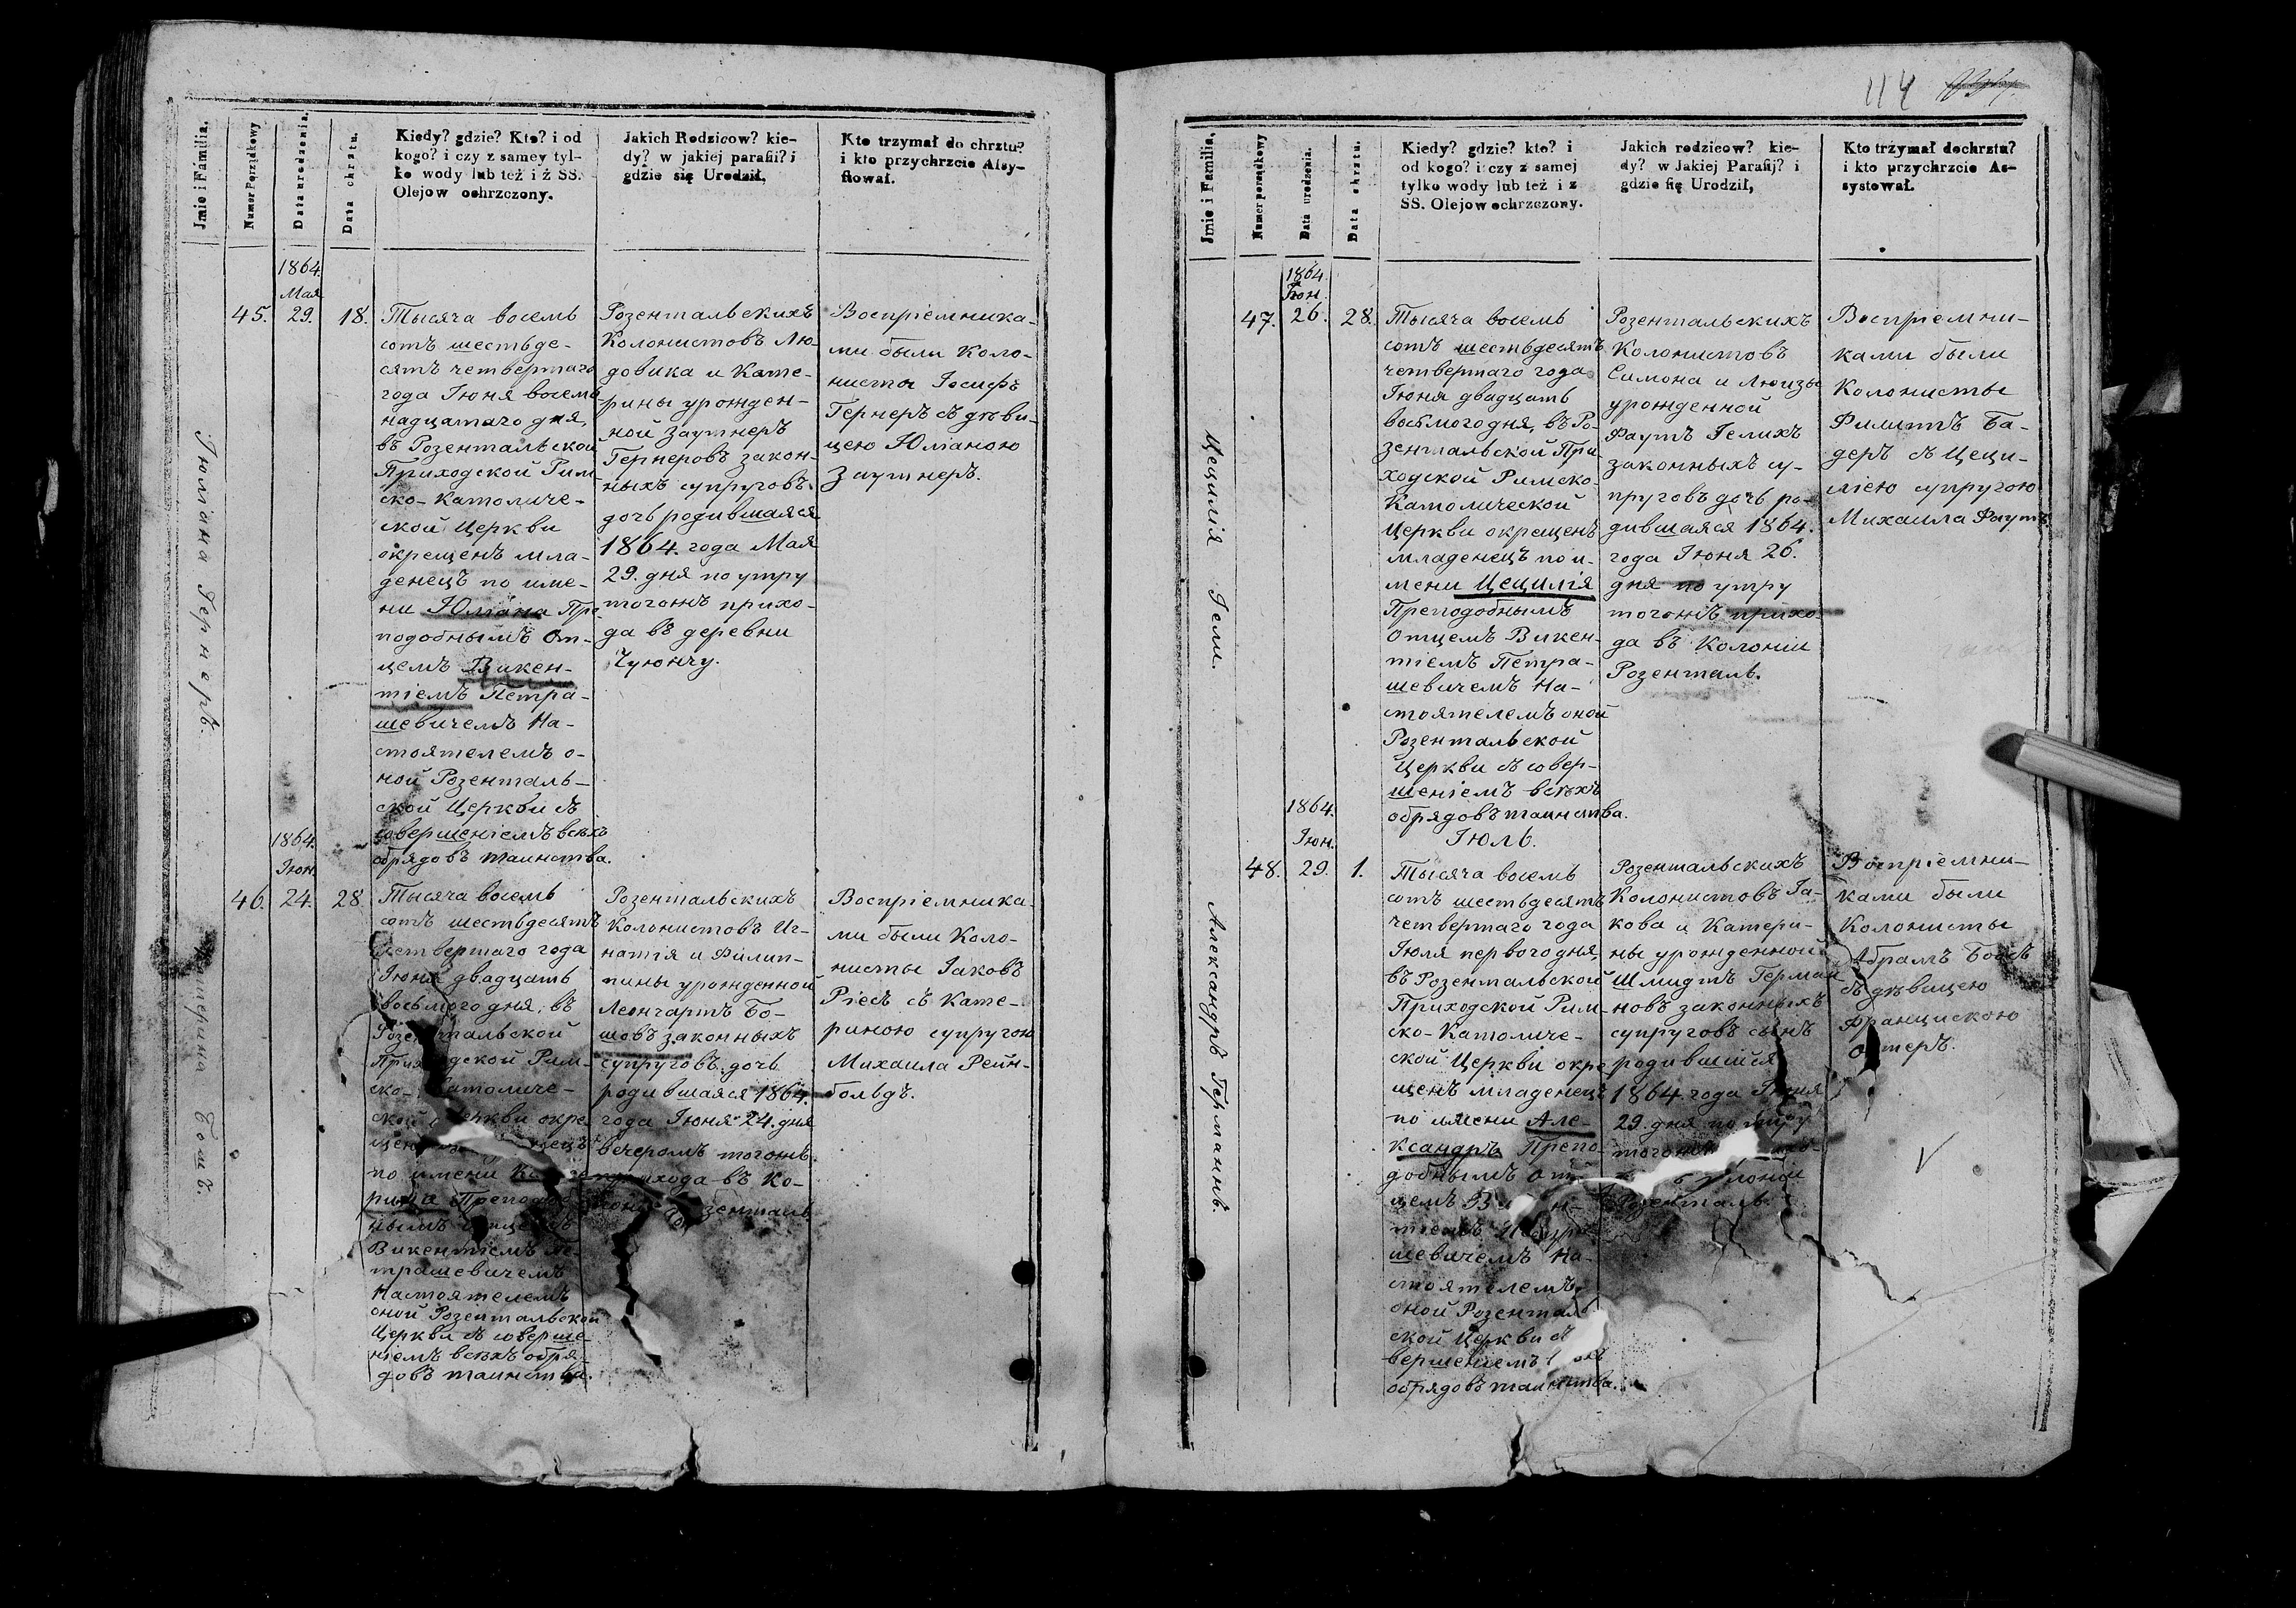 114
Jmie i Familia.
Numer Porządkowy
Data urodzenia.
Data chrztu.
Kiedy? gdzie? Kto? i od
kogo? i czy z samey tyl-
ko wody lub też i ż SS.
Olejow ochrzczony.
Jakich Rodzicow? kie-
dy? w jakiej parafii? i
gdzie się Urodził.
Kto trzymał do chrztu?
i kto przychrzcie Assy-
stował.
Юліана Гернеръ.
1864.
Мая
45.
29.
18.
Тысяча восемь
сотъ шестьде-
сятъ четвертаго
года Іюня восемь
надцатаго дня,
въ Розентальской
Приходской Рим
ско-Католиче-
ской Церкви
окрещенъ мла-
денецъ по име-
ни Юліана Пре
подобнымъ От-
цемъ Викен-
тіемъ Петра-
шевичемъ На-
стоятелемъ о-
ной Розенталь-
ской Церкви съ
совершеніемъ всѣхъ
обрядовъ таинства.
Розентальскихъ
Колонистовъ Лю-
довика и Кате-
рины урожден-
ной Заутнеръ
Гернеровъ закон-
ныхъ супруговъ
дочь родившаяся
1864. года Мая
29. дня по утру
тогожъ прихо-
да въ деревни
Чуюнчу.
Воспріемника-
ми были Коло-
нисты Іосифъ
Гернеръ съ дѣви-
цею Юліаною
Заутнеръ.
Катерина Бошъ.
1864.
Іюн.
46.
24.
28
Тысяча восемь
сотъ шестьдесятъ
четвертаго года
Іюня двадцать
восьмого дня, въ
Розентальской
Приходской Рим-
ско-Католиче-
ской Церкви окре
по имени
рина Преподоб
нымъ Отцемъ
Викентіемъ Пе-
трашевичемъ
Настоятелемъ
оной Розентальской
Церкви съ соверше-
ніемъ всѣхъ обря-
довъ таинства.
Розентальскихъ
Колонистовъ Иг-
натія и Филип-
пины урожденной
Леонгартъ Бо-
шовъ законныхъ
супруговъ дочь
родившаяся 1864.
года Іюня 24. дня
вечеромъ тогожъ
прихода въ Ко-
Розенталь
Воспріемника-
ми были Коло-
нисты Іаковъ
Рісъ съ Кате-
риною супругою
Михаила Рейн-
больдъ.
Jmie i Familia.
Numer porządkowy
Data urodzenia.
Data chrztu.
Kiedy? gdzie? kto? i
od kogo? i czy z samej
tylko wody lub też i z
SS. Olejow ochrzczony.
Jakich rodzicow? kie-
dy? w Jakiej Parafij? i
gdzie się Urodził,
Kto trżymał dochrztu?
i kto przychrzcie As-
systował.
Цецилія Гелл.
1864.
Іюн.
47.
26.
28.
Тысяча восемь
сотъ шестьдесятъ
четвертаго года
Іюня двадцать
восьмого дня, въ Ро-
зентальской При
ходской Римско-
Католической
Церкви окрещенъ
младенецъ по и-
мени Цецилія
Преподобнымъ
Отцемъ Викен-
тіемъ Петра-
шевичемъ На-
стоятелемъ оной
Розентальской
Церкви съ совер-
шеніемъ всѣхъ
обрядовъ таинства.
Розентальскихъ
Колонистовъ
Симона и Люизы
урожденной
Фаутъ Гелихъ
законныхъ су-
пруговъ дочь ро-
дившаяся 1864.
года Іюня 26.
дня по утру
тогожъ прихо-
да въ Колоніи
Розенталь.
Воспріемни-
ками были
Колонисты
Филиппъ Ба-
деръ съ Цеци-
ліею супругою
Михаила Фаутъ.
Александръ Германъ.
1864.
Іюн.
Іюль.
48.
29.
1.
Тысяча восемь
сотъ шестьдесятъ
четвертаго года
Іюля первого дня,
въ Розентальской
Приходской Рим-
ско-Католиче-
ской Церкви окре
щенъ младенецъ
по имени Але-
ксандръ Препо-
добнымъ От
цемъ
тіемъ Петра
шевичемъ На-
стоятелемъ
оной Розенталь
ской Церкви съ
вершеніемъ
обрядовъ таинства.
Розентальскихъ
Колонистовъ Іа-
кова и Катери-
ны урожденной
Шмидтъ Герман
новъ законныхъ
супруговъ сынъ
родившійся
1864. года Іюня
29. дня по утру
тогожъ
Колоніи
Розенталь.
Воспріемни-
ками были
Колонисты
Абрамъ Боссъ
съ дѣвицею
Францискою